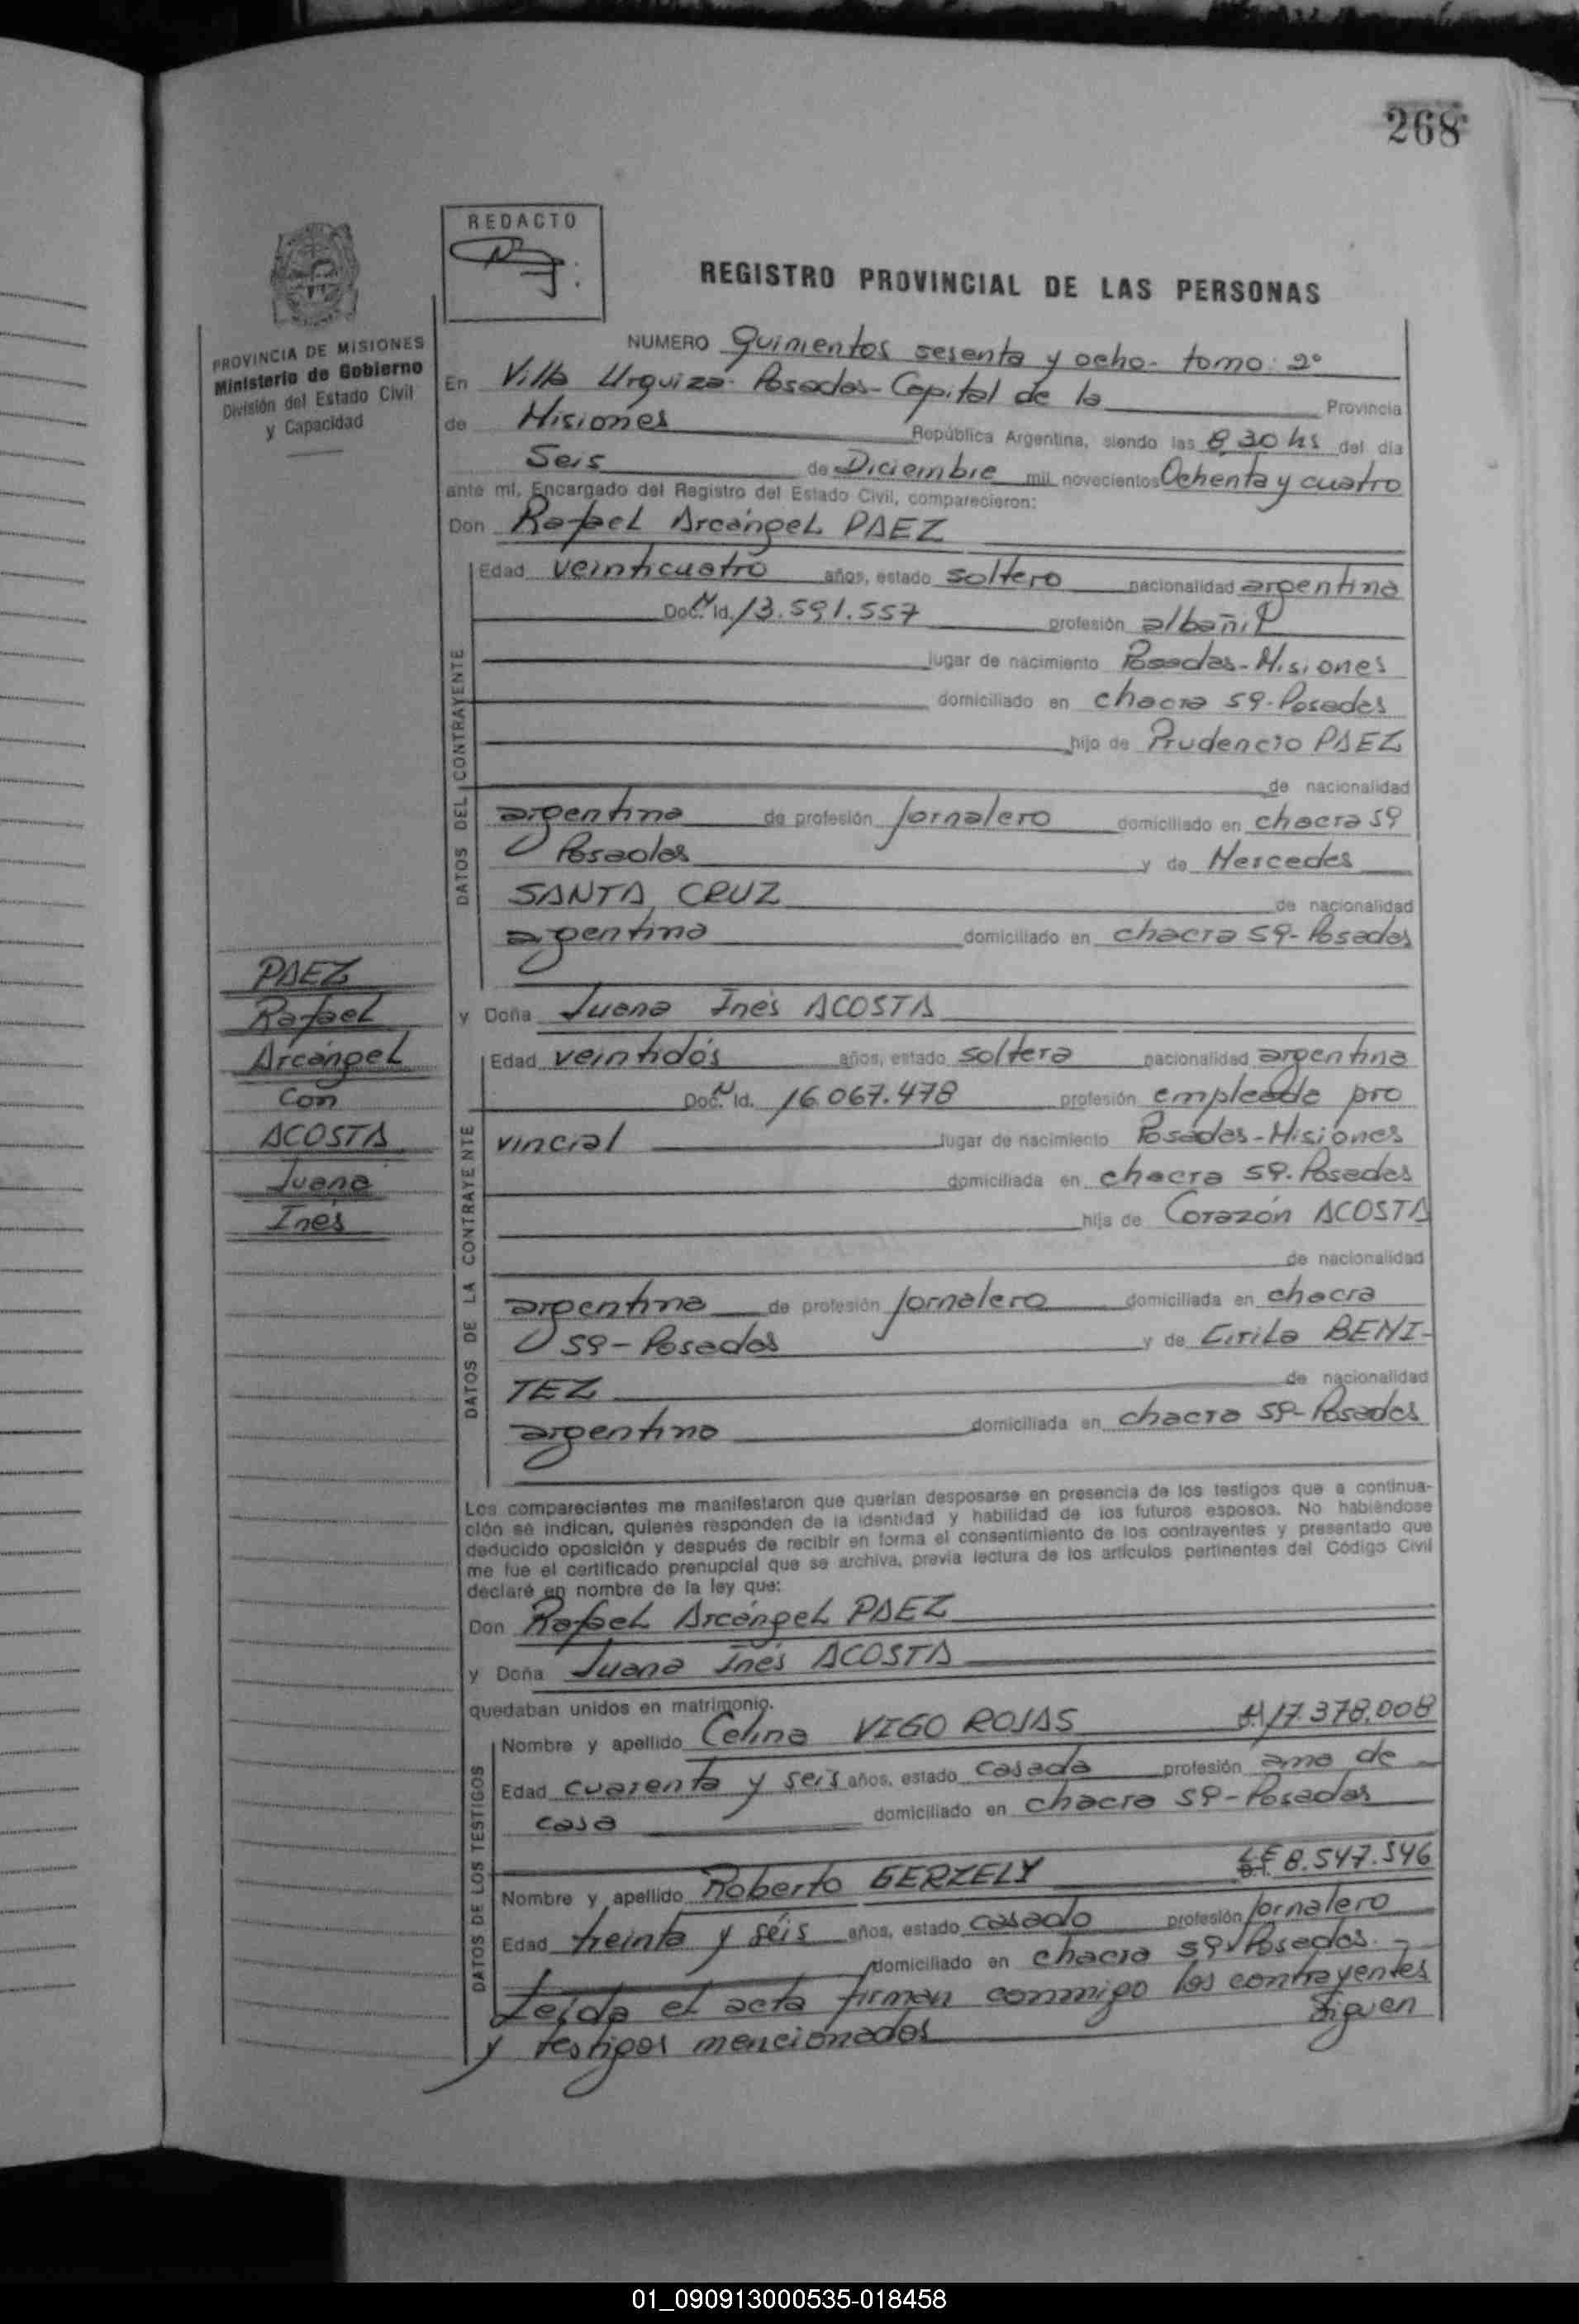 268
REDACTO
REGISTRO PROVINCIAL DE LAS PERSONAS
PROVINCIA DE MISIONES
Ministerio de Gobierno
División del Estado Civil
y Capacidad
NUMERO Quinientos sesenta y ocho- tomo: 2º
En Villa Urquiza- Posadas- Capital de la Provincia
de Misiones República Argentina, siendo las 8,30 hs del dia
Seis de Diciembre mil novecientos Ochenta y cuatro
ante mi, Encargado del Registro del Estado Civil, comparecieron:
Don Rafael Arcángel PAEZ
DATOS DEL CONTRAYENTE
Edad veinticuatro años, estado soltero nacionalidad argentina
Doc. N Id. 13.591.557 profesión albañil
lugar de nacimiento Posadas-Misiones
domiciliado en chacra 59-Posadas
hijo de Prudencio PAEZ
de nacionalidad
argentina de profesión jornalero domiciliado en chacra 59
Posadas y de Mercedes
SANTA CRUZ de nacionalidad
argentina domiciliado en chacra 59-Posadas
PAEZ
Rafael
Arcángel
Con
ACOSTA
Juana
Inés
y Doña Juana Inés ACOSTA
DATOS DE LA CONTRAYENTE
Edad veintidós años, estado soltera nacionalidad argentina
Doc. N Id. 16.067.478 profesión empleada pro
vincial lugar de nacimiento Posadas-Misiones
domiciliada en chacra 59-Posadas
hija de Corazón ACOSTA
de nacionalidad
argentina de profesión jornalero domiciliada en chacra
59-Posadas y de Cirila BENI-
TEZ de nacionalidad
argentina domiciliada en chacra 59-Posadas
Los comparecientes me manifestaron que querían desposarse en presencia de los testigos que a continua-
ción se indican, quienes responden de la identidad y habilidad de los futuros esposos. No habiéndose
deducido oposición y después de recibir en forma el consentimiento de los contrayentes y presentado que
me fue el certificado prenupcial que se archiva, previa lectura de los artículos pertinentes del Código Civil
declaré en nombre de la ley que:
Don Rafael Arcángel PAEZ
y Doña Juana Inés ACOSTA
quedaban unidos en matrimonio.
DATOS DE LOS TESTIGOS
Nombre y apellido Celina VIGO ROJAS 17.378.008
Edad cuarenta y seis años, estado casada profesión ama de
casa domiciliado en chacra 59-Posadas
Nombre y apellido Roberto GERZELY LE 8.547.546
Edad treinta y séis años, estado casado profesión jornalero
domiciliado en chacra 59-Posadas.-
Leída el acta firman conmigo los contrayentes
y testigos mencionados siguen
01_090913000535-018458